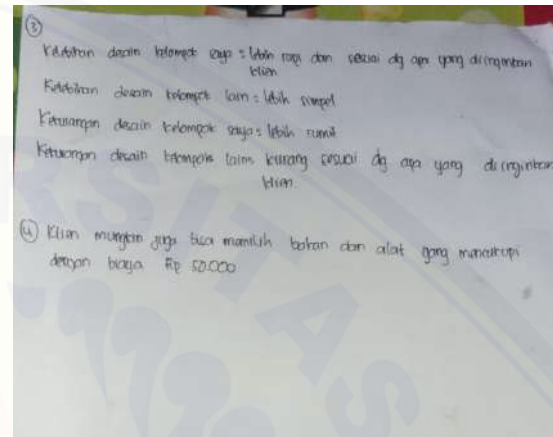 ③
Kelebihan desain kelompok saya : lebih rapi dan sesuai dg apa yang diinginkan
klien
Kelebihan desain kelompok lain : lebih simpel
Kekurangan desain kelompok saya : lebih rumit
Kekurangan desain kelompok lain : kurang sesuai dg apa yang diinginkan
klien.
④ Klien mungkin juga bisa memilih bahan dan alat yang mencukupi
dengan biaya Rp 50.000